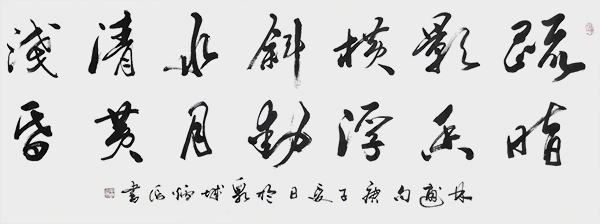 疏影横斜水清淺
暗香浮動月黄昏
林逋句庚子夏日於泉城書